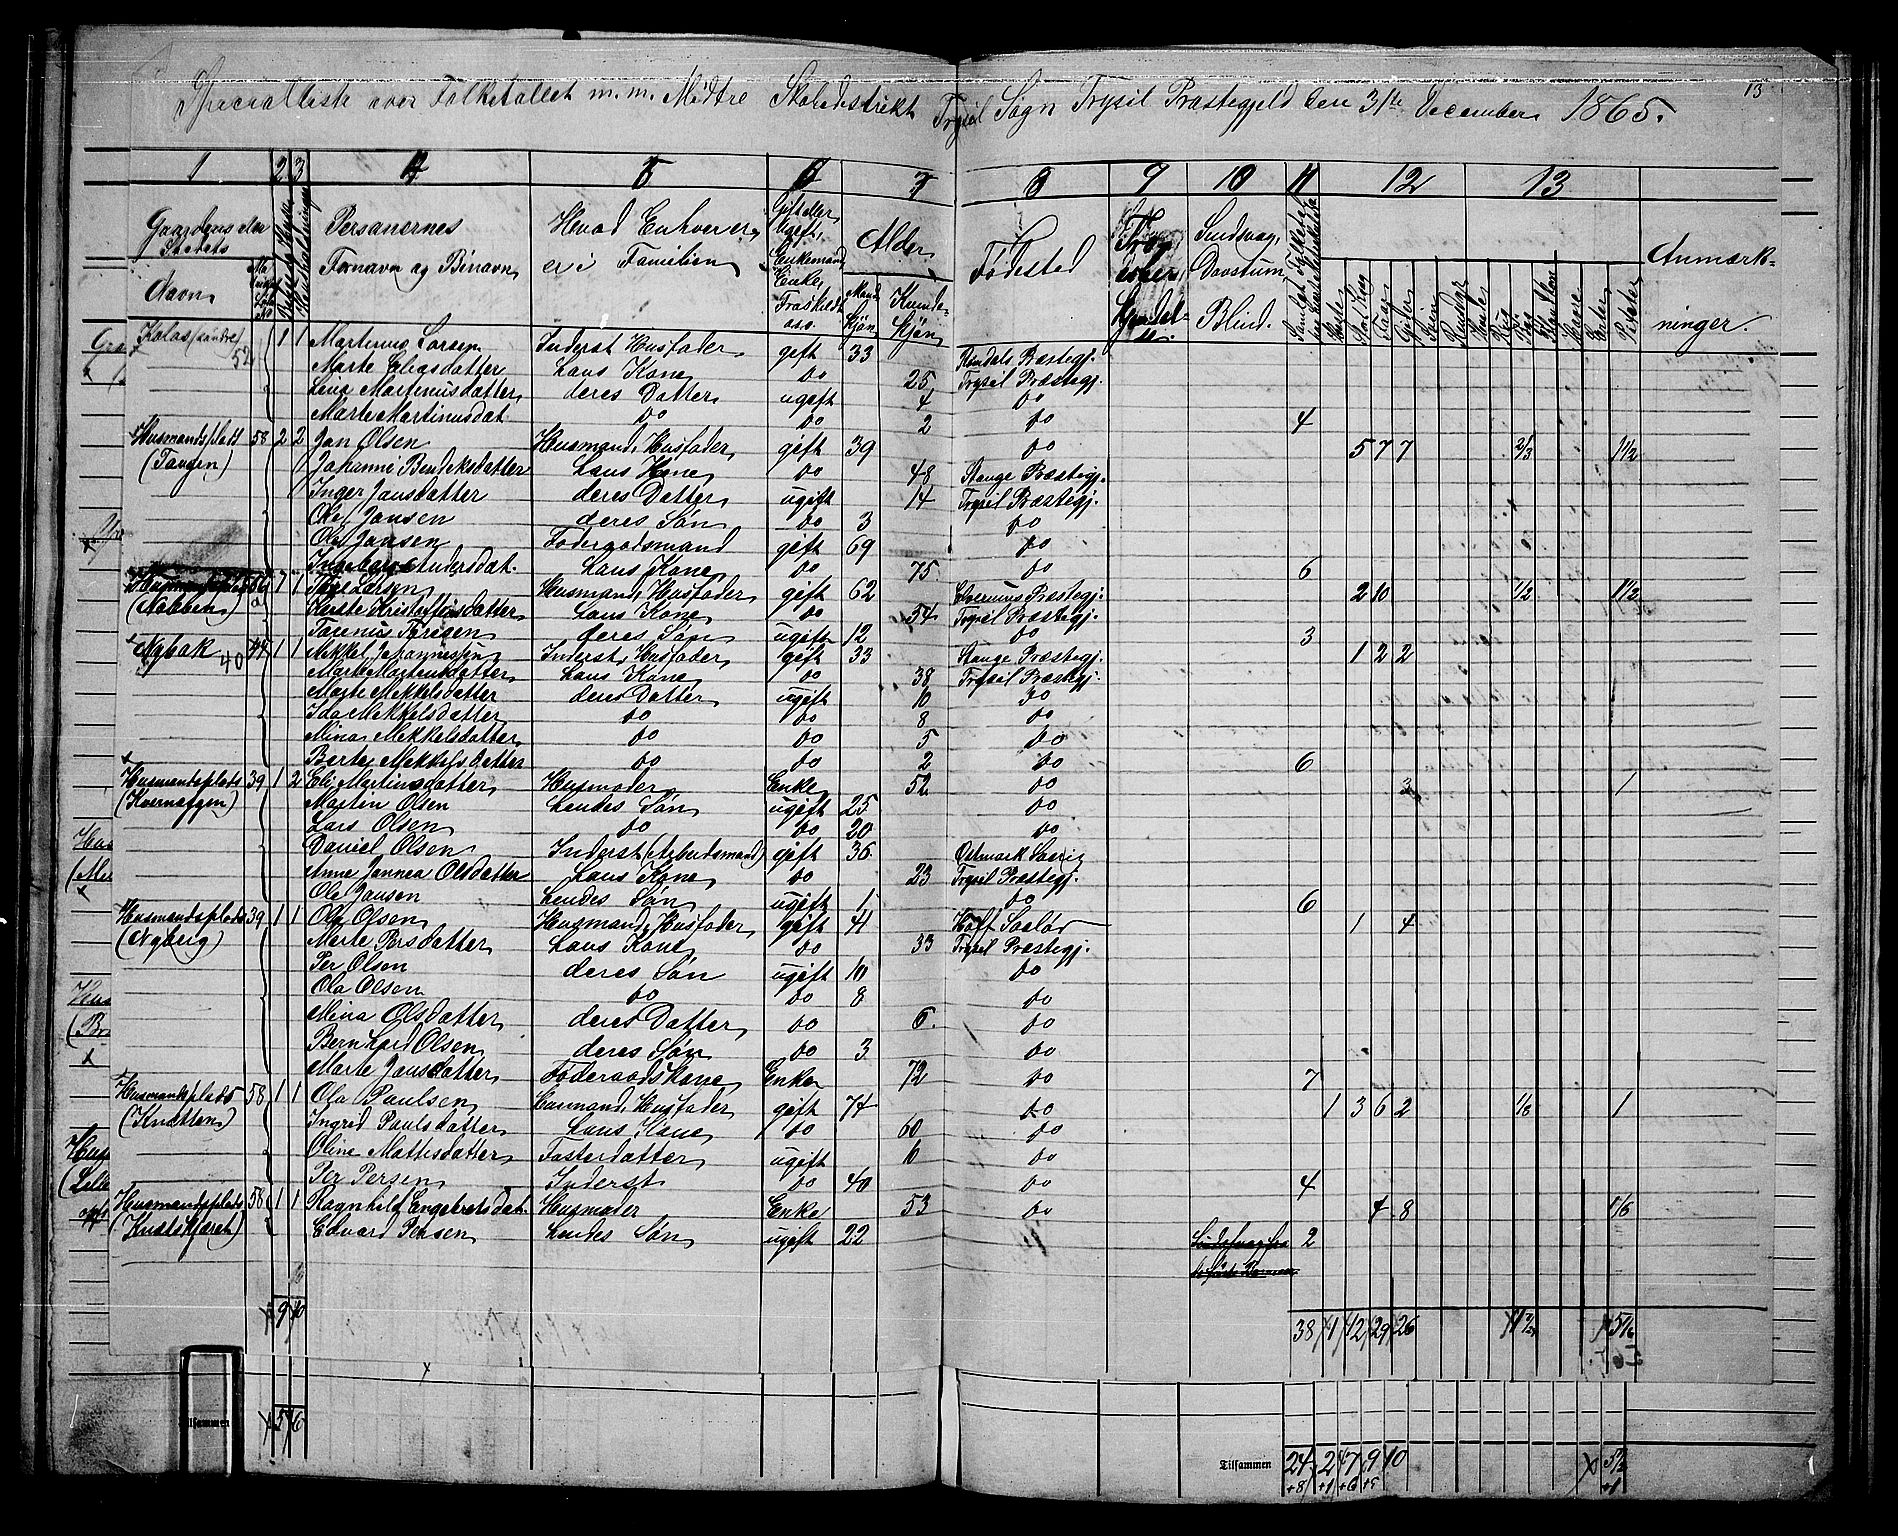 Specialliste over Folketallet m.m. Midtre Skoledistrikt Trysil Sogn Trysil Præstegjeld den 31te December 1865.
13
1 2 3 4 5 6 7 8 9 10 11 12 13
Gaardens eller Stedets Navn
Personernes Fornavn og Binavn
Hvad Enhver er i Familien
Gift eller Ugift, Enkemand Enke, Fraskildt o.s.v.
Alder
Mand Kjøn
Kvinde Kjøn
Fødested
Sindsvag, Døvstum Blind.
Anmærkninger.
52 1 1 Martinus Larsen Inderst Husfader gift 33 Præstegj.
Marte Eliasdatter hans Kone do 25 Trysil Præstegj.
Lena Martinusdatter deres Datter ugift 4 do
Marte Martinusdat do do 2 do 4
Husmandsplads 58 2 2 Jan Olsen Husmand, Husfader gift 39 do 5 7 7 2/3 1 1/2
(Tangen) Johanne Bendiksdatter hans Kone do 48 Stange Præstegj.
Inger Jansdatter deres Datter ugift 14 Trysil Præstegj.
Ole Jansen deres Søn do 3 do
Ole Jansen Føderaadsmand gift 69 do
Ingeborg Andersdat. hans Kone do 75 do 6
1 Tore Larsen Husmand, Husfader gift 62 Elverums Præstegj. 2 10 1/2 1 1/2
(Nabben) Kristoffersdatter hans Kone do 54 Trysil Præstegj.
Torenius Toresen deres Søn ugift 12 do 3
Nybak 40 44 1 1 Mikkel Johannesen Inderst, Husfader gift 33 Stange Præstegj. 1 2 2
Marte Martinusdatter hans Kone do 38 Trysil Præstegj.
Marte Mikkelsdatter deres Datter ugift 10 do
Ida Mikkelsdatter do do 8 do
Mina Mikkelsdatter do do 5 do
Berte Mikkelsdatter do do 2 do 6
Husmandsplads 39 1 2 Eli Martinsdatter Husmoder Enke 52 do 3 1
Martin Olsen hendes Søn ugift 25 do
Lars Olsen do do 20 do
Daniel Olsen Inderst (Arbeidsmand) gift 36 Østmark
Anne Jannea Olsdatter hans Kone do 23 Trysil Præstegj.
Ole Jansen hendes Søn ugift 1 do 6
Husmandsplads 39 1 1 Ole Olsen Husmand, Husfader gift 41 Hoff Soelør 1 4
(Nyberg) Marte Persdatter hans Kone do 33 Trysil Præstegj.
Per Olsen deres Søn ugift 10 do
Ola Olsen do do 8 do
Mina Olsdatter deres Datter do 6 do
Bernhard Olsen deres Søn do 3 do
Marte Jansdatter Føderaadskone Enke 72 do 7
Husmandsplads 58 1 1 Ola Paulsen Husmand, Husfader gift 74 do 1 3 6 2 1/8 1
(Knatten) Ingrid Paulsdatter hans Kone do 60 do
Oline Mattisdatter Fosterdatter ugift do
Per Persen Inderst do 40 do 4
Husmandsplads 58 1 1 Ragnhild Engebretsdat. Husmoder Enke 53 do 4 8 1/6
Edvard Persen hendes Søn ugift 22 2
9 10
38 1 12 29 26
Tilsammen 5 6
Tilsammen 24 2 7 9 10
+8 +1 +6 +5 +1